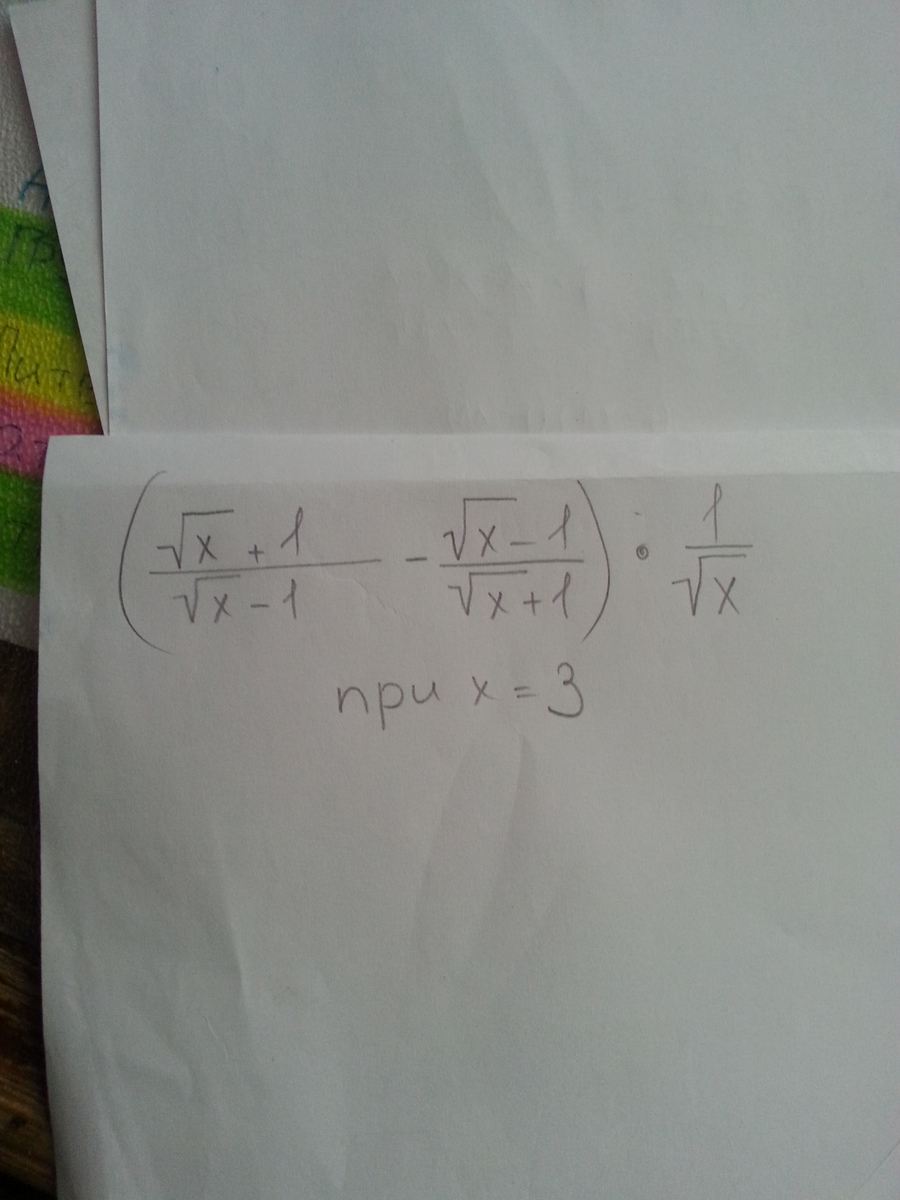 (√x + 1 / √x - 1 - √x - 1 / √x + 1) · 1 / √x
при x = 3